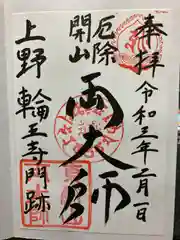 奉拝
令和三年二月一日
厄除
開山
両大師
上野
輪王寺門跡